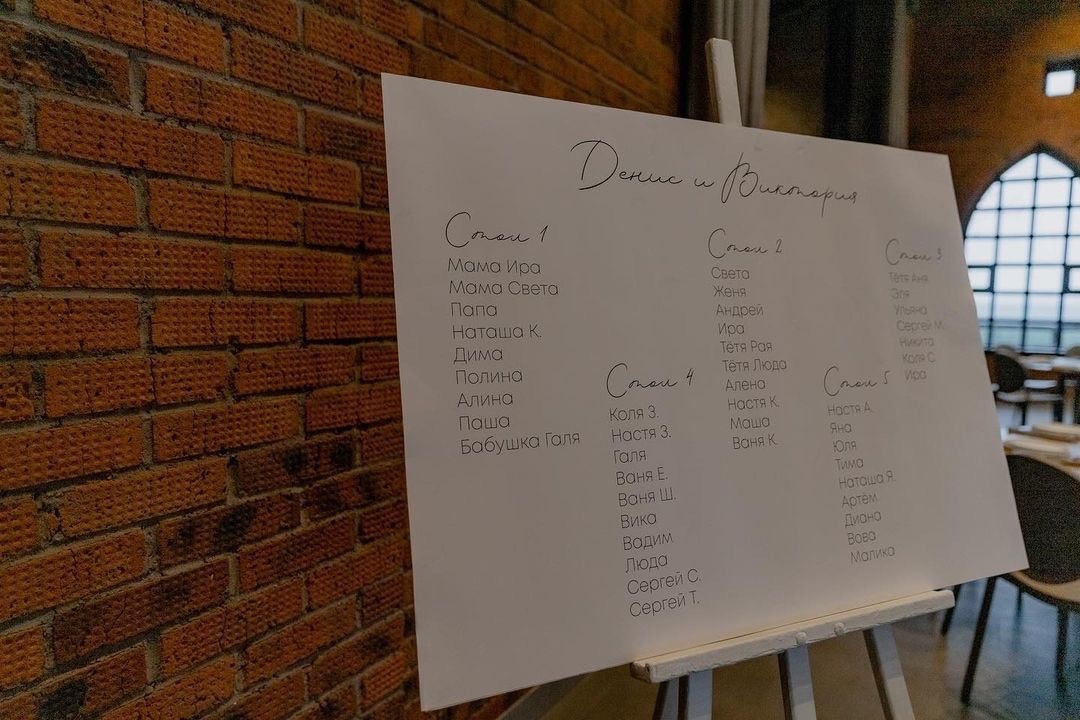 Денис и Виктория
Стол 1
Мама Ира
Мама Света
Папа
Наташа К.
Дима
Полина
Алина
Паша
Бабушка Галя
Стол 2
Света
Женя
Андрей
Ира
Тётя Рая
Тётя Люда
Алена
Настя К.
Маша
Ваня К.
Стол 3
Тётя Аня
Эля
Ульяна
Сергей М.
Никита
Коля С.
Ира
Стол 4
Коля З.
Настя З.
Галя
Ваня Е.
Ваня Ш.
Вика
Вадим
Люда
Сергей С.
Сергей Т.
Стол 5
Настя А.
Яна
Юля
Тима
Наташа Я.
Артём
Диана
Вова
Малика